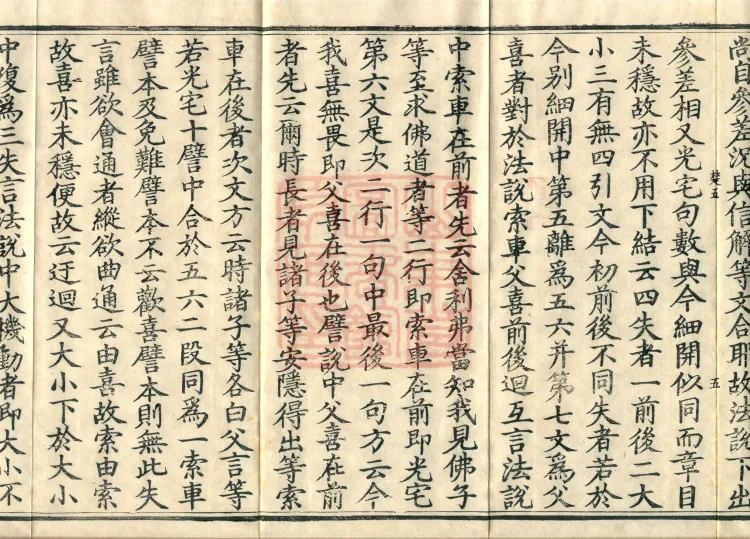 尚自參差況與信解等文合耶故法說下出
參差相又光宅句數與今細開似同而章目
未穩故亦不用下結云四失者一前後二大
小三有無四引文今初前後不同失者若於
今別細開中第五離爲五六幷第七文爲父
喜者對於法說索車父喜前後迴互言法說
中索車在前者先云舍利弗當知我見佛子
等至求佛道者等二行即索車在前即光宅
第六文是次二行一句中最後一句方云今
我喜無畏即父喜在後也譬說中父喜在前
者先云爾時長者見諸子等安隱得出等索
車在後者次文方云時諸子等各白父言等
若光宅十譬中合於五六二段同爲一索車
譬本及免難譬本不云歡喜譬本則無此失
言雖欲會通者縱欲曲通云由喜故索由索
故喜亦未穩便故云迂迴又大小下於大小
中復爲三失言法說中大機動者即大小不
五